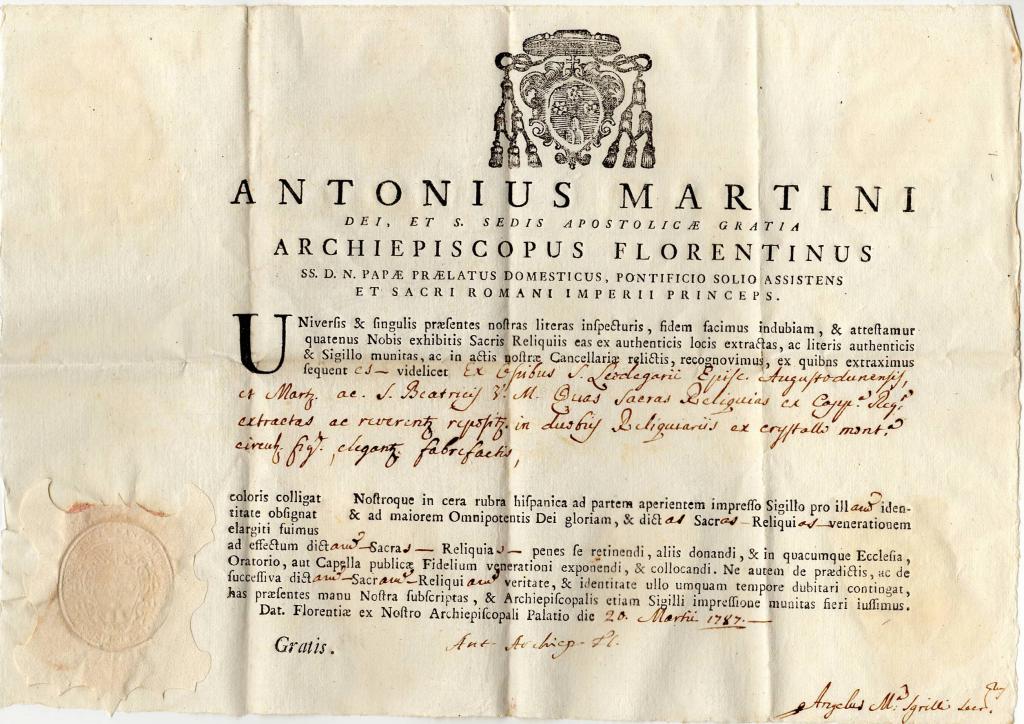 ANTONIUS MARTINI
DEI, ET S. SEDIS APOSTOLICÆ GRATIA
ARCHIEPISCOPUS FLORENTINUS
SS. D. N. PAPÆ PRÆLATUS DOMESTICUS, PONTIFICIO SOLIO ASSISTENS
ET SACRI ROMANI IMPERII PRINCEPS.
UNiverſis & ſingulis præſentes noſtras literas inſpecturis, fidem facimus indubiam, & atteſtamur
quatenus Nobis exhibitis Sacris Reliquiis eas ex authenticis locis extractas, ac literis authenticis
& Sigillo munitas, ac in actis noſtræ Cancellariæ relictis, recognovimus, ex quibns extraximus
ſequent es videlicet Ex Oſsibus S. Leodegarii Episc. Augustodunensis,
et Mart. ac S. Beatricis V. M. Quas Sacras Reliquias ex
extractas ac reverent. reposit. in duobus Reliquiariis ex crystallo mont.
circul. fig. elegant. fabrefactis,
coloris colligat Noſtroque in cera rubra hiſpanica ad partem aperientem impreſſo Sigillo pro ill am iden-
titate obſignat & ad maiorem Omnipotentis Dei gloriam, & dict as Sacr as Reliqui as venerationem
elargiti fuimus
ad effectum dict am Sacra s Reliquia s penes ſe retinendi, aliis donandi, & in quacumque Eccleſia,
Oratorio, aut Capella publicæ Fidelium venerationi exponendi, & collocandi. Ne autem de prædictis, ac de
ſucceſſiva dict am Sacr am Reliqui am veritate, & identitate ullo umquam tempore dubitari contingat,
has præſentes manu Noſtra ſubſcriptas, & Archiepiſcopalis etiam Sigilli impreſſione munitas fieri iuſſimus.
Dat. Florentiæ ex Noſtro Archiepiſcopali Palatio die 20. Martii 1787.
Gratis. Ant. Archiep. Fl.
Angelus M.ª Sgrilli